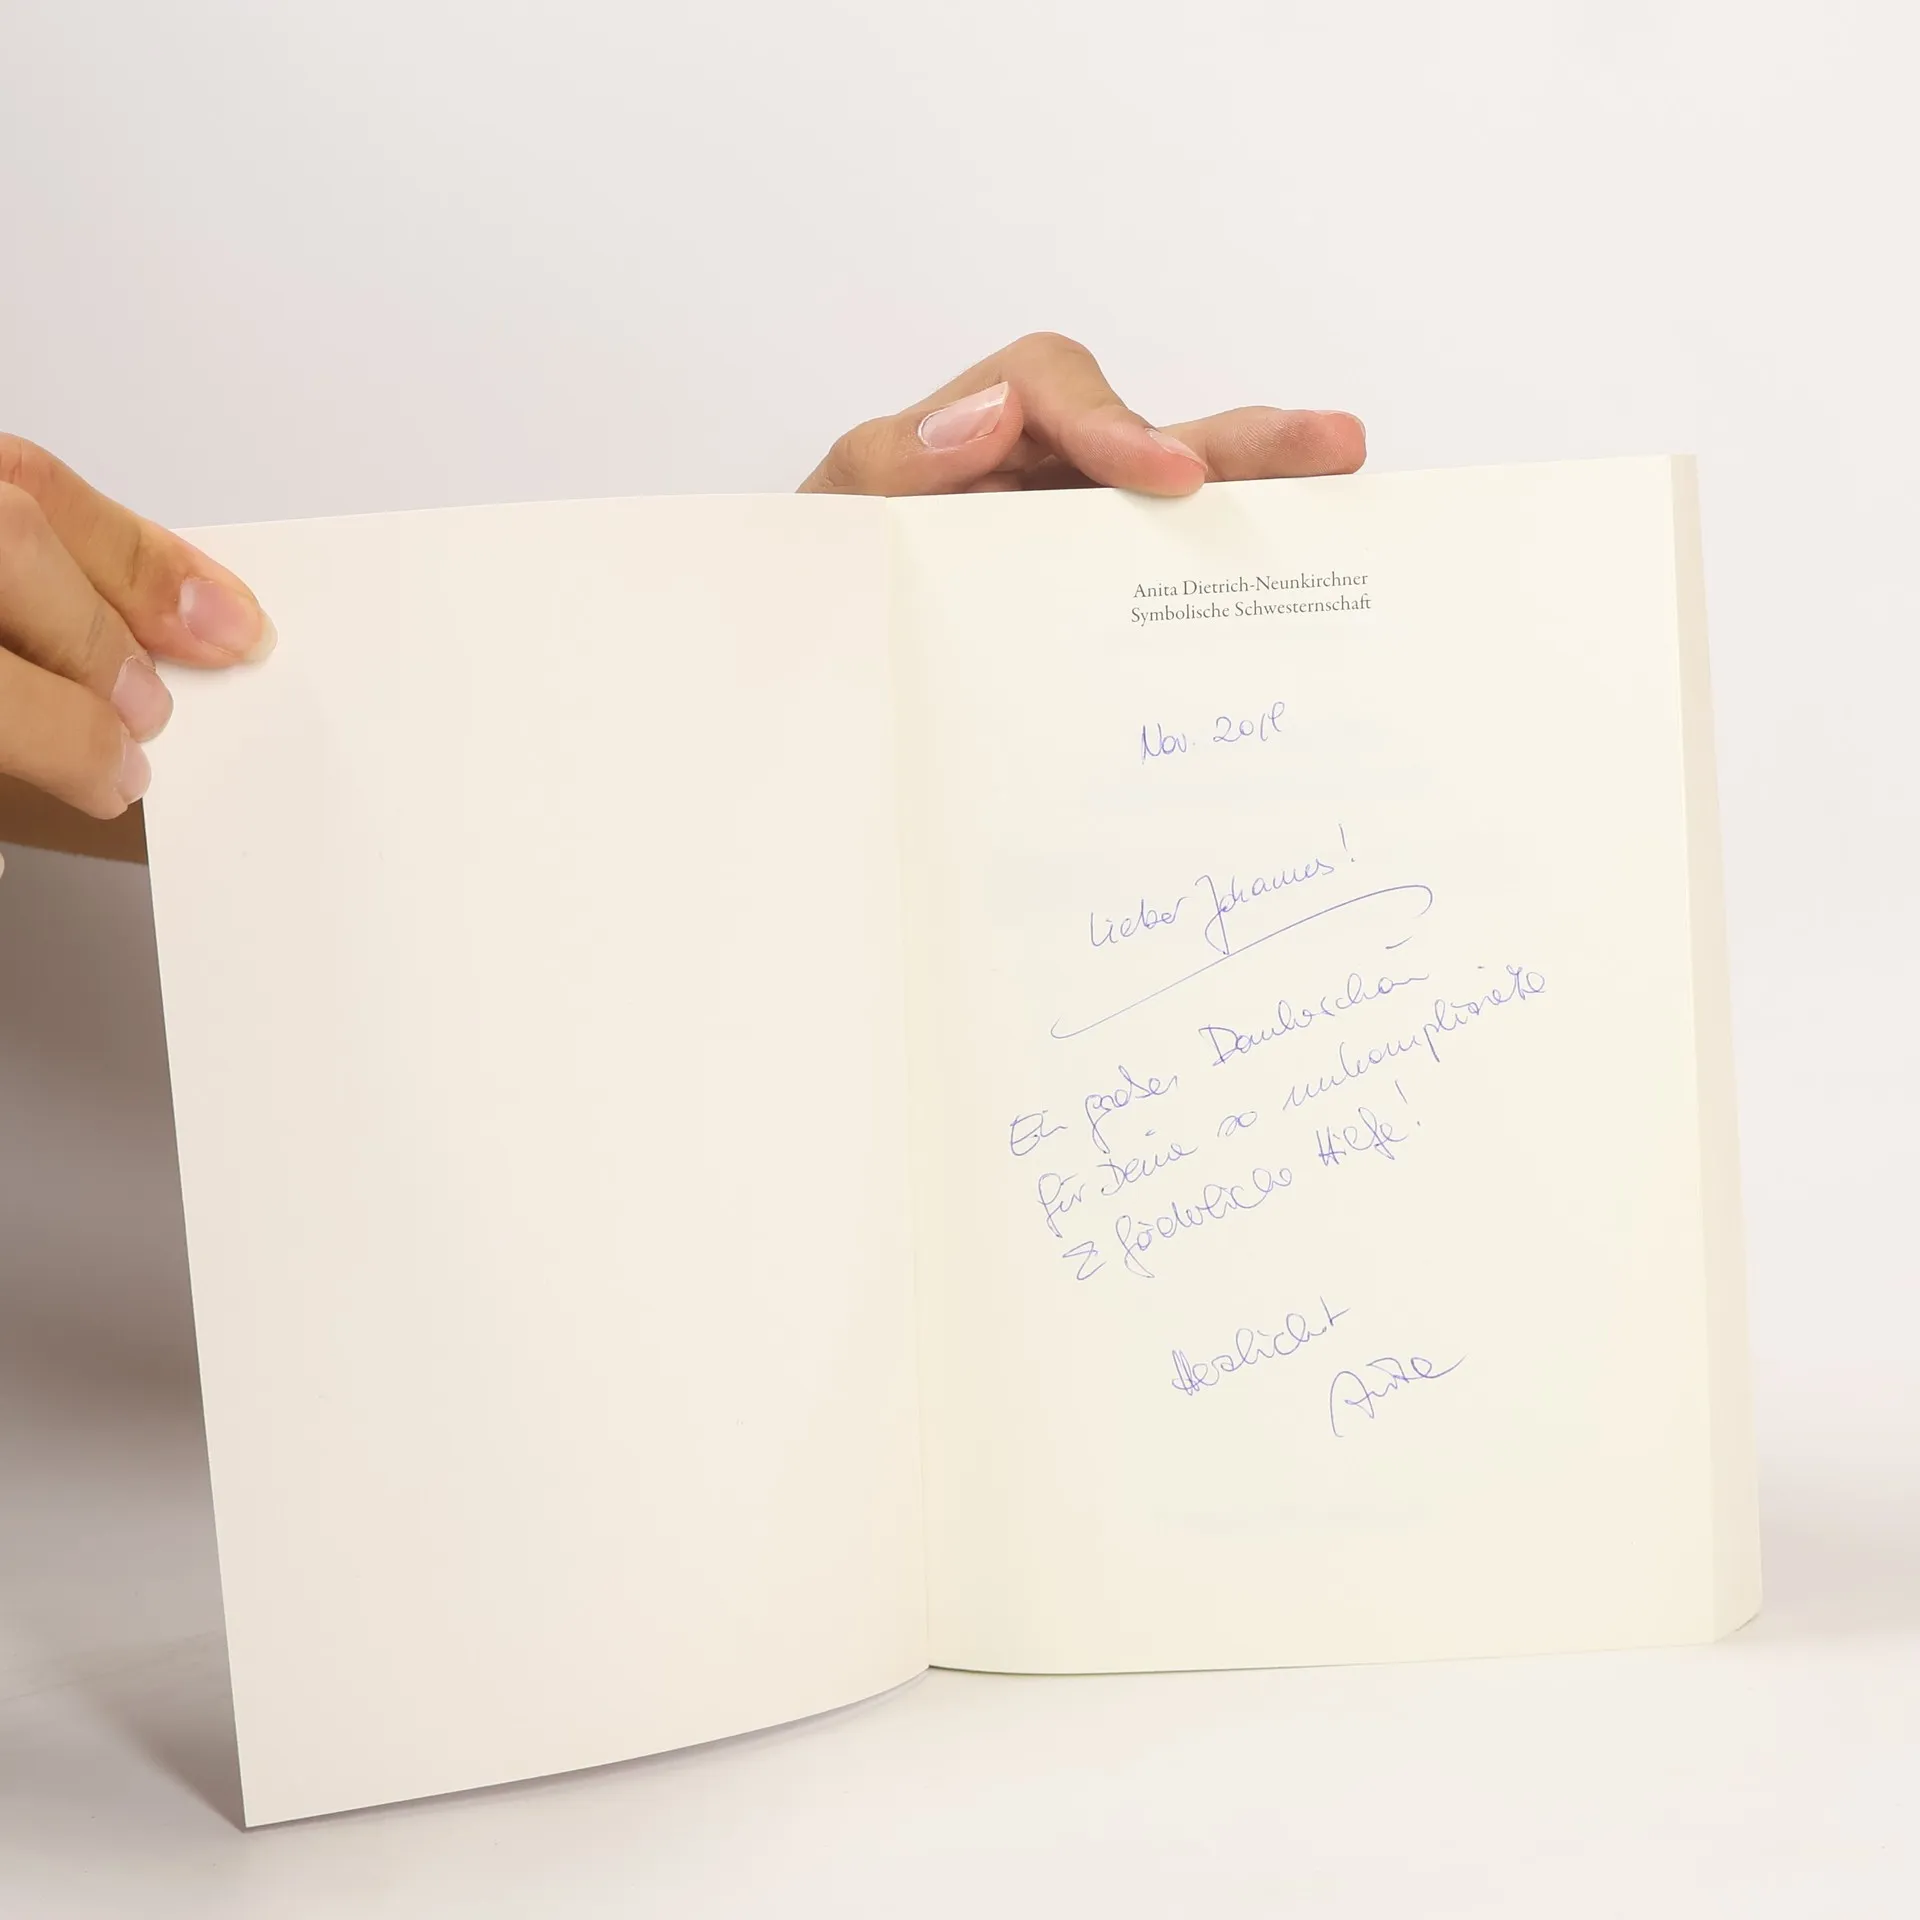 Anita Dietrich-Neunkirchner
Symbolische Schwesternschaft
Nov. 2019
Lieber Johannes!
Ein großes Dankeschön
für Deine so unkomplizierte
& förderliche Hilfe!
Herzlichst
Anita